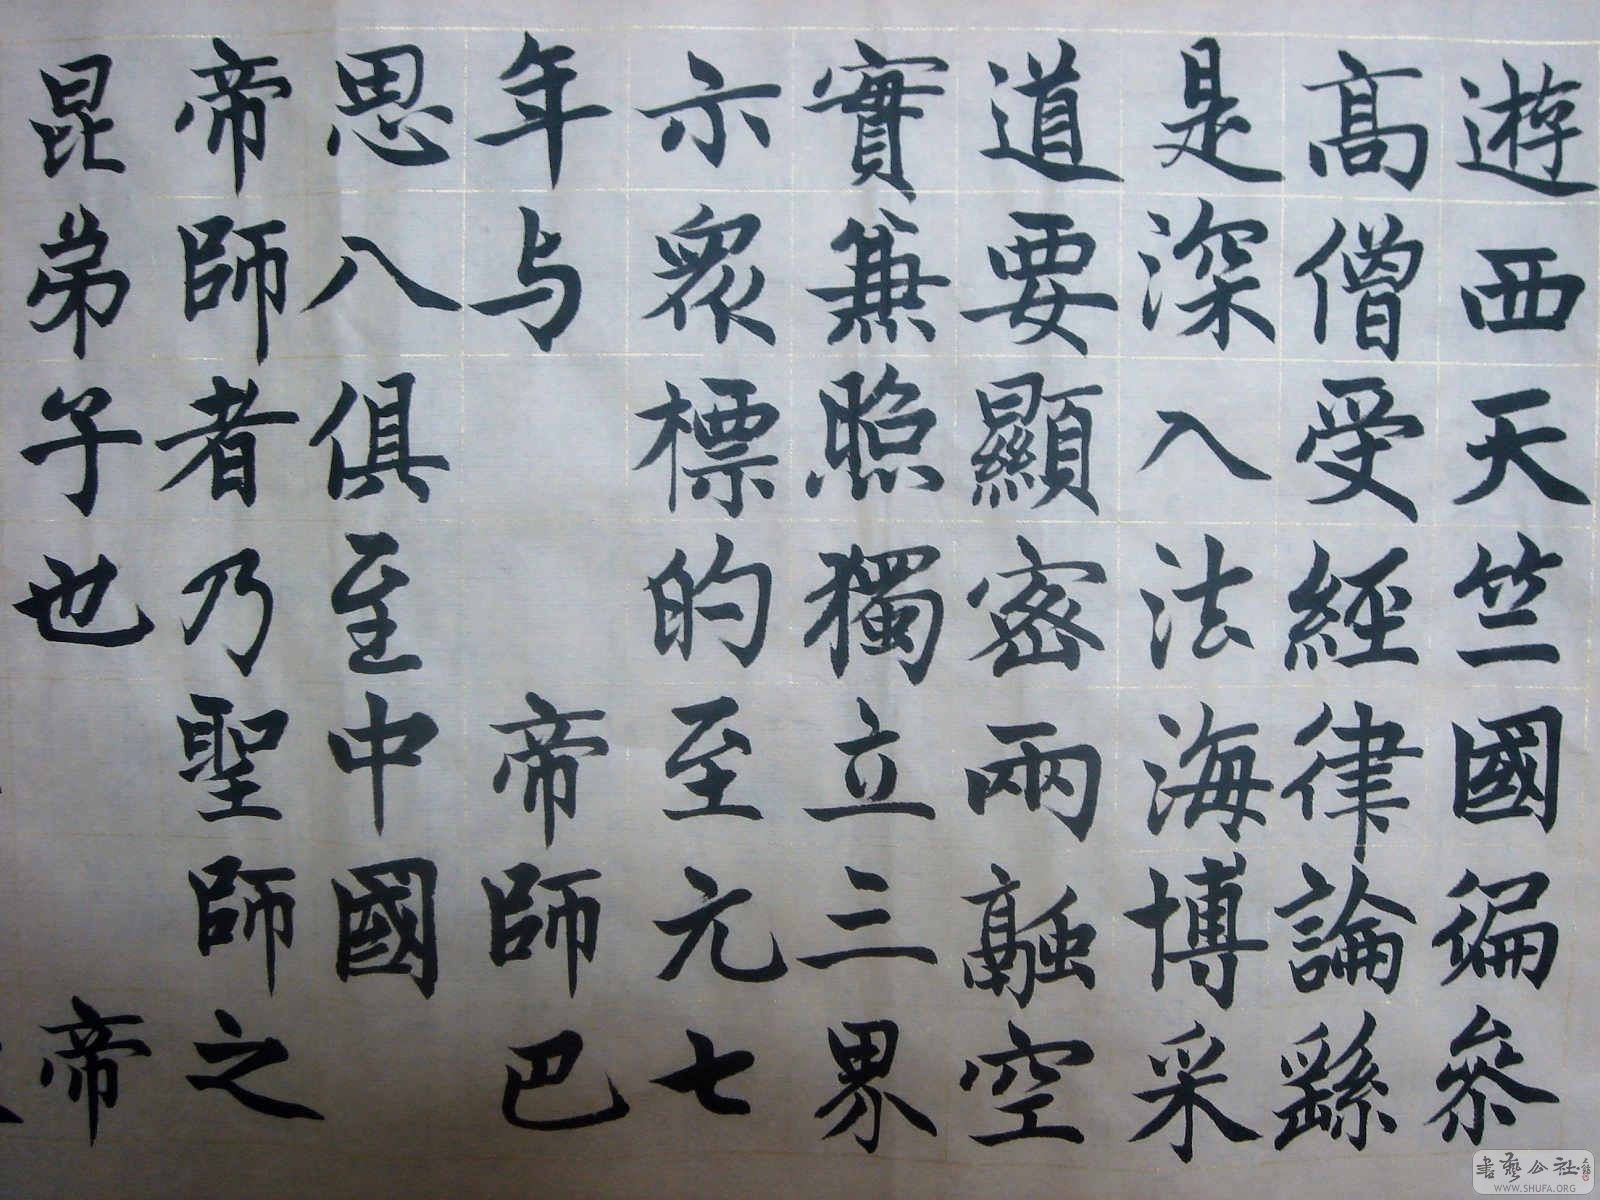 遊西天竺國徧參
髙僧受經律論繇
是深入法海博采
道要顯密兩融空
實兼照獨立三界
示衆標的至元七
年与帝師巴
思八俱至中國
帝師者乃聖師之
昆弟子也帝
書藝公社
WWW.SHUFA.ORG